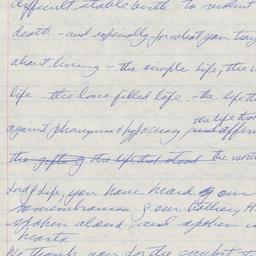 difficult stable birth to violent
death - and especially for what you taug
about living - the simple life, the
life - the love filled life - the life th
the life that
against phonyness & hypocrisy, and affirm
the gifting the life that stood the wort
Lord of Life, you have heard of our
remembrances of our brothers, H
spoken aloud, and spoken in
hearts
We thank you for the